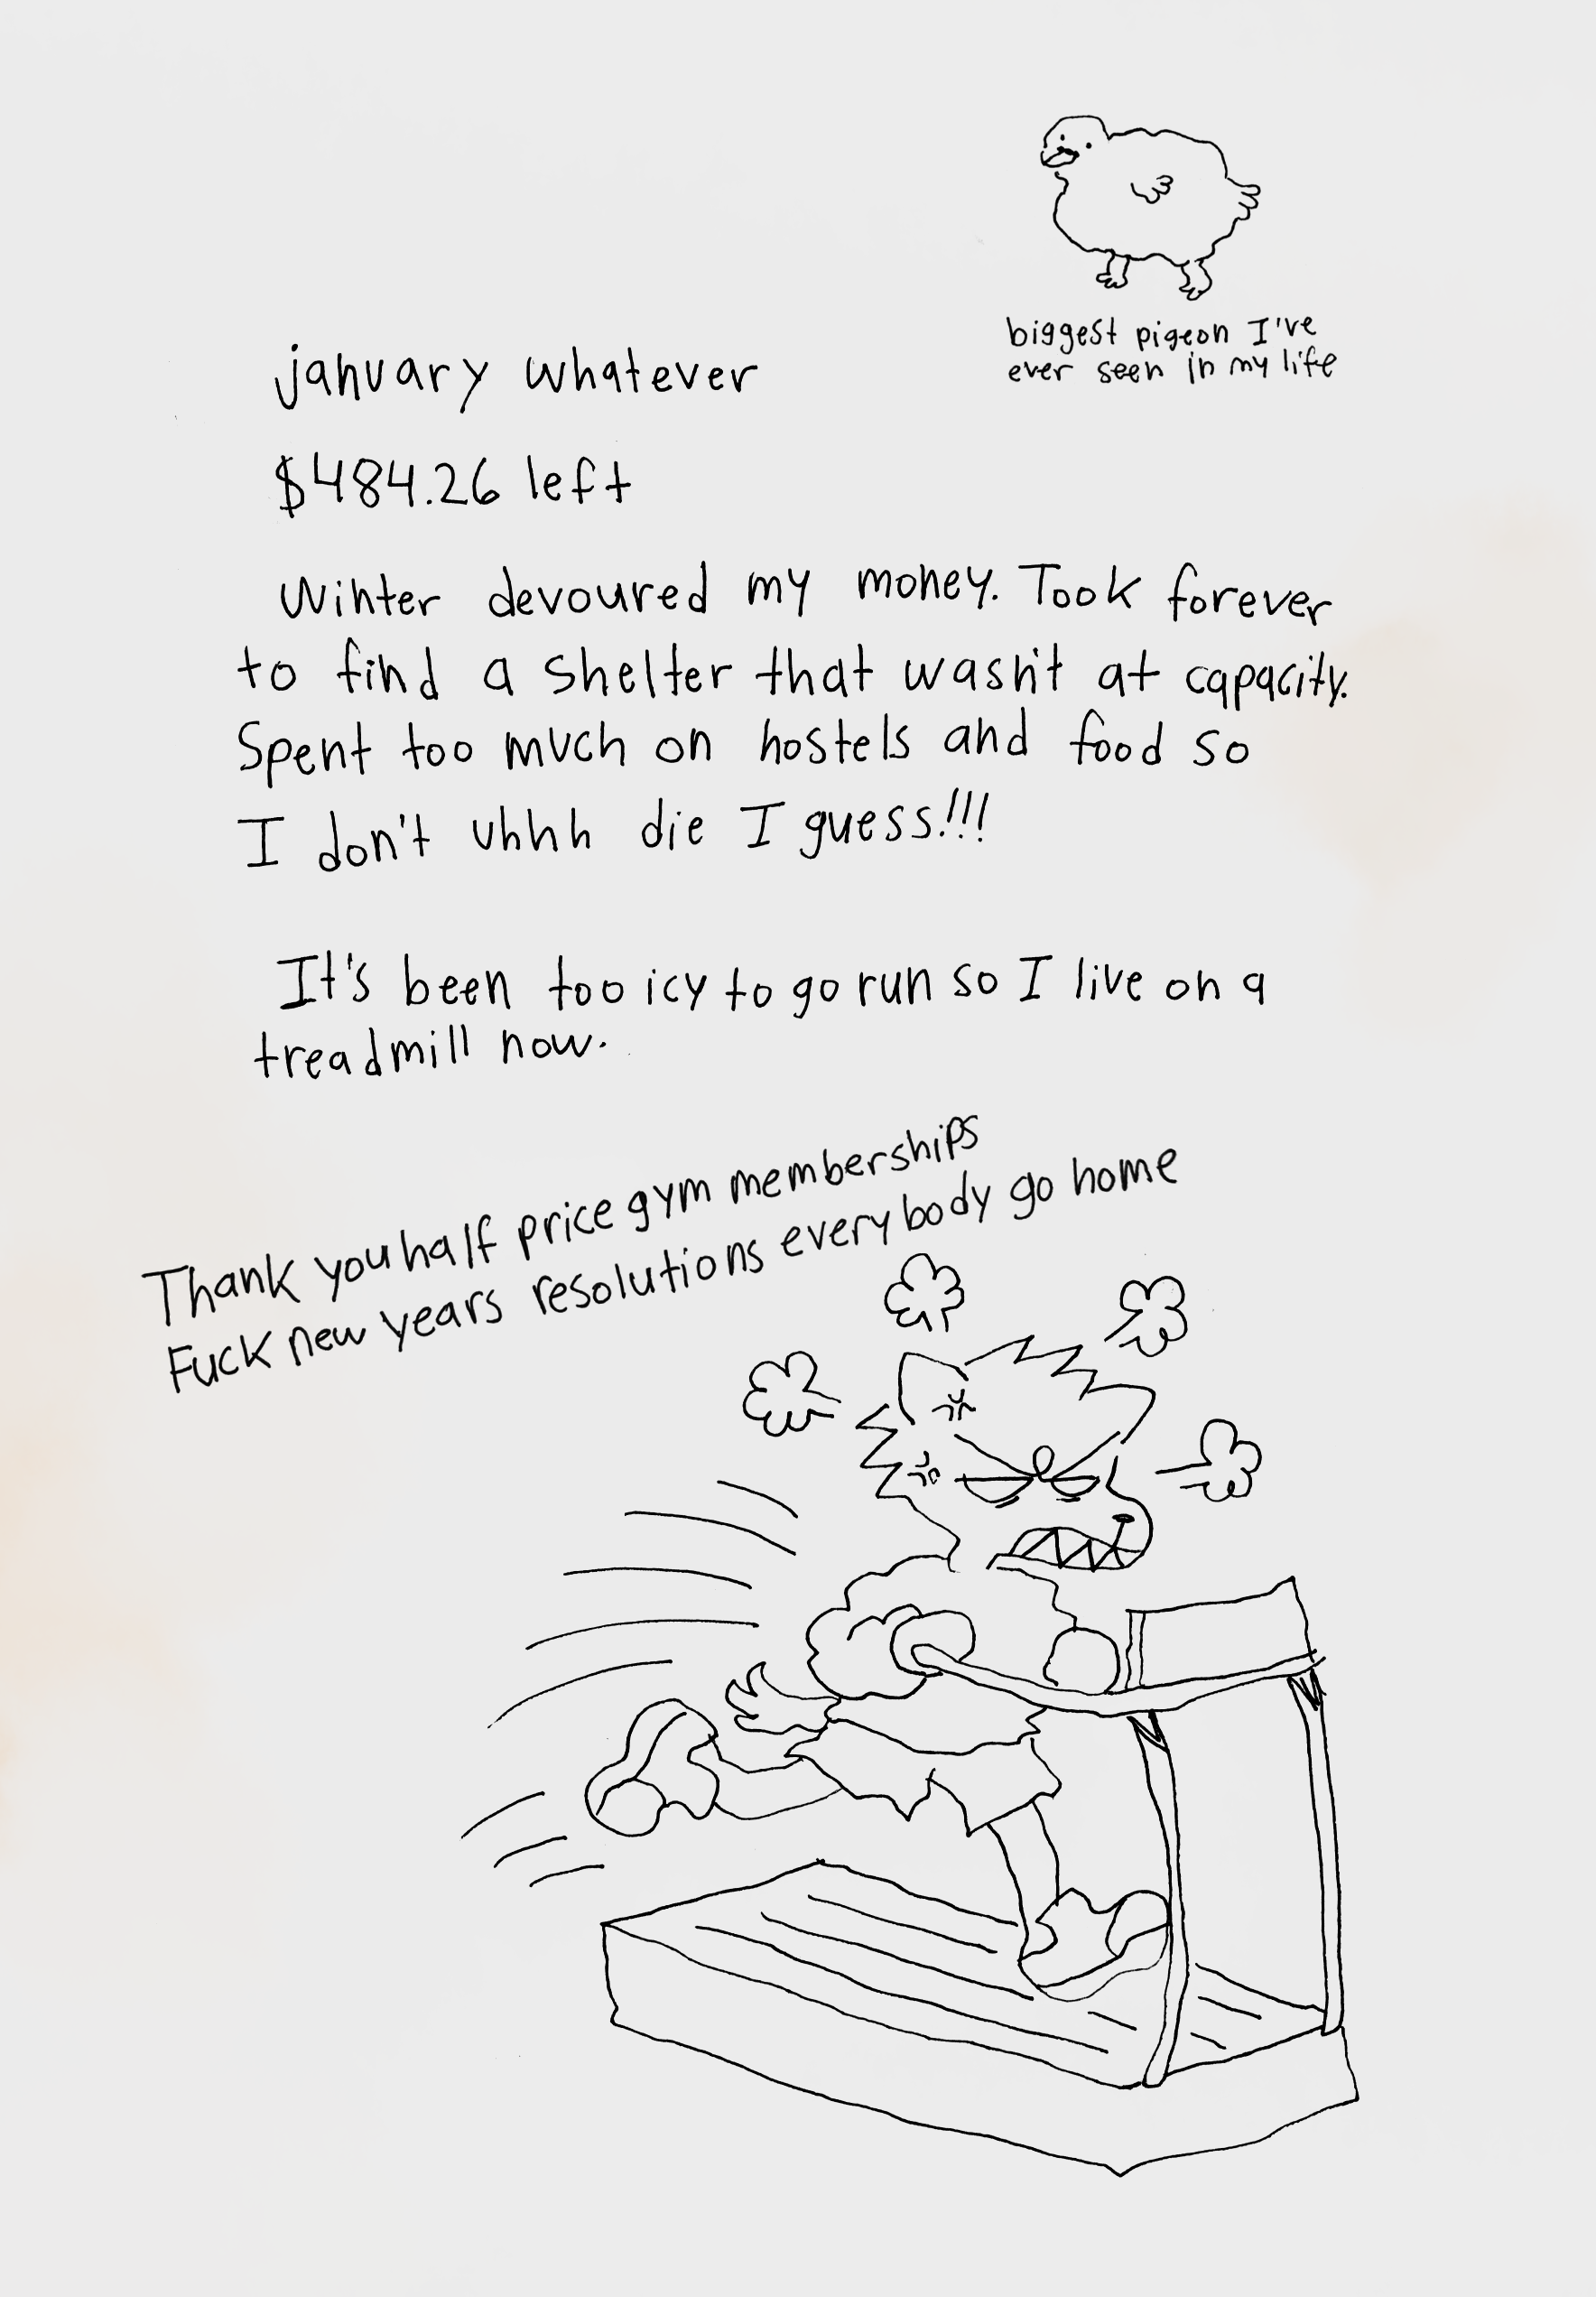 biggest pigeon I've
ever seen in my life
january whatever
$484.26 left
Winter devoured my money. Took forever
to find a shelter that wasn't at capacity.
Spent too much on hostels and food so
I don't uhhh die I guess!!!
It's been too icy to go run so I live on a
treadmill now.
Thank you half price gym memberships
Fuck new years resolutions everybody go home